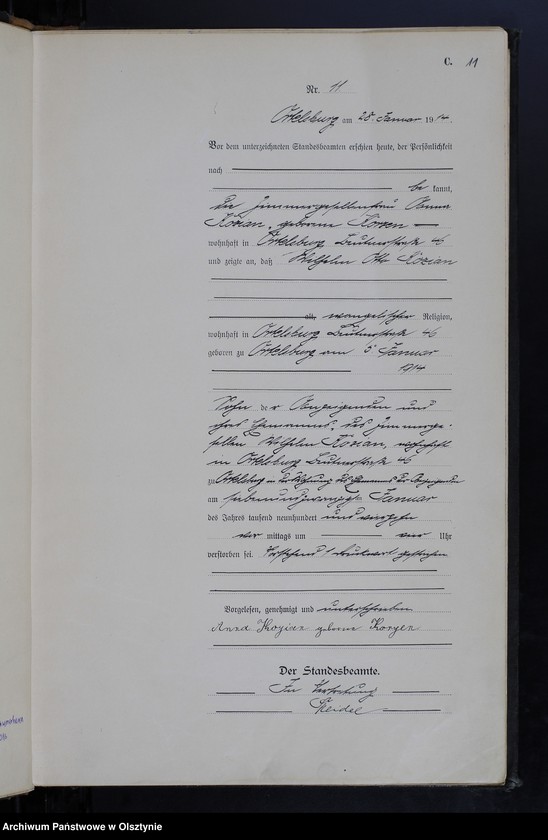 C. 11
Nr. 11
Ortelsburg am 28. Januar 1914.
Vor dem unterzeichneten Standesbeamten erschien heute, der Persönlichkeit
nach
be kannt,
die Zimmergesellenfrau Anna
Kozian, geborene Korzen
wohnhaft in Ortelsburg Beutnerstraße 46
und zeigte an, daß Wilhelm Otto Kozian
alt, evangelischer Religion,
wohnhaft in Ortelsburg Beutnerstraße 46
geboren zu Ortelsburg am 5 Januar
1914
Sohn der Anzeigenden und
ihres Ehemannes, des Zimmerge-
sellen Wilhelm Kozian, wohnhaft
in Ortelsburg Beutnerstraße 46
zu Ortelsburg in der Wohnung des Ehemanns der Anzeigenden
am siebenundzwanzigsten Januar
des Jahres tausend neunhundert und vierzehn
vor mittags um vier Uhr
verstorben sei. Vorstehend 1 Druckwort gestrichen
Vorgelesen, genehmigt und unterschrieben
Anna Kozian geborene Korzen
Der Standesbeamte.
In Vertretung
Archiwum Państwowe w Olsztynie